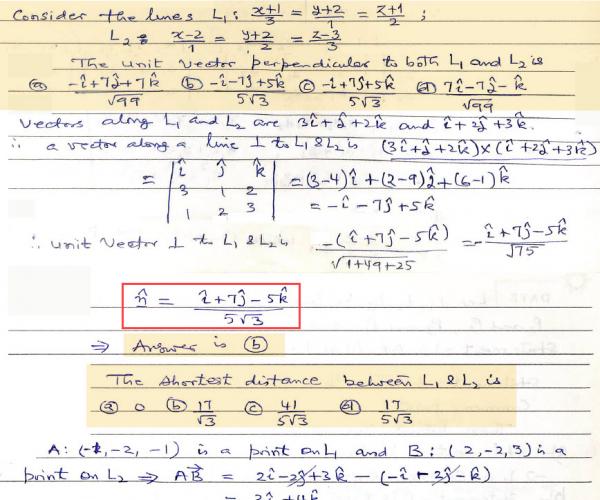 Consider the lines L₁: x+1/3 = y+2/1 = z+1/2 ;
L₂: x-2/1 = y+2/2 = z-3/3
The unit vector perpendicular to both L₁ and L₂ is
(a) -î+7ĵ+7k̂/√99 (b) -î-7ĵ+5k̂/5√3 (c) -î+7ĵ+5k̂/5√3 (d) 7î-7ĵ-k̂/√99
Vectors along L₁ and L₂ are 3î+ĵ+2k̂ and î+2ĵ+3k̂.
∴ a vector along a line ⊥ to L₁ & L₂ is (3î+ĵ+2k̂)×(î+2ĵ+3k̂)
= | î ĵ k̂ | = (3-4)î+(2-9)ĵ+(6-1)k̂
| 3 1 2 | = -î-7ĵ+5k̂
| 1 2 3 |
∴ unit vector ⊥ to L₁ & L₂ is -(î+7ĵ-5k̂)/√1+49+25 = -î+7ĵ-5k̂/√75
n̂ = î+7ĵ-5k̂/5√3
⇒ Answer is (b)
The shortest distance between L₁ & L₂ is
(a) 0 (b) 17/√3 (c) 41/5√3 (d) 17/5√3
A: (-1, -2, -1) is a point on L₁ and B: (2, -2, 3) is a
point on L₂ ⇒ AB⃗ = 2î-2ĵ+3k̂ - (-î-2ĵ-k̂)
= 3î+4k̂